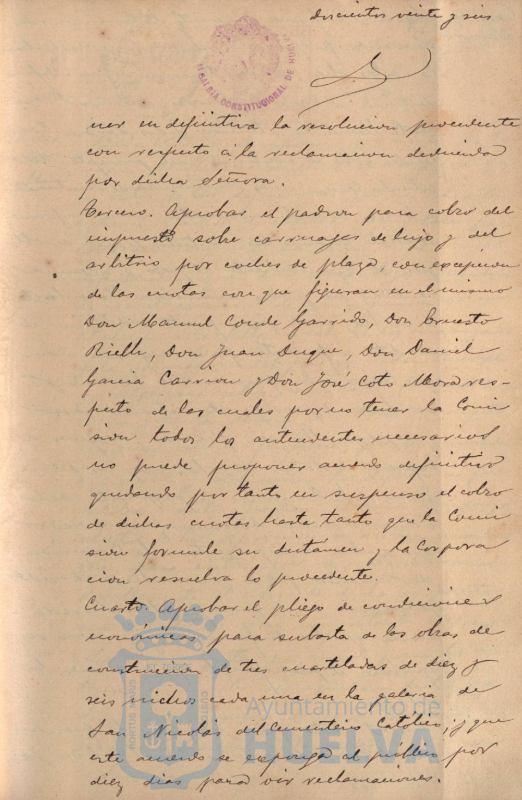 doscientos veinte y seis
ALCALDIA CONSTITUCIONAL DE HUELVA
ner en definitiva la resolucion procedente
con respecto á la reclamacion deducida
por dicha Señora.
Tercero. Aprobar el padron para cobro del
impuesto sobre carruages de lujo y del
arbitrio por coches de plaza, con excepcion
de las cuotas con que figuran en el mismo
Don Manuel Conde Garrido, Don Ernesto
Rielh, Don Juan Duque, Don Daniel
Garcia Carrion y Don José Coto Mora res-
pecto de las cuales por no tener la Comi
sion todos los antecedentes necesarios
no puede proponer acuerdo definitivo
quedando por tanto en suspenso el cobro
de dichas cuotas hasta tanto que la Comi
sion formule su dictámen y la Corpora
cion resuelva lo procedente.
Cuarto. Aprobar el pliego de condiciones
económicas para subasta de las obras de
construccion de tres cuarteladas de diez y
seis nichos cada una en la galeria de
San Nicolás del Cementerio Católico; y que
este acuerdo se exponga al público por
diez dias para oir reclamaciones.
Ayuntamiento de
HUELVA